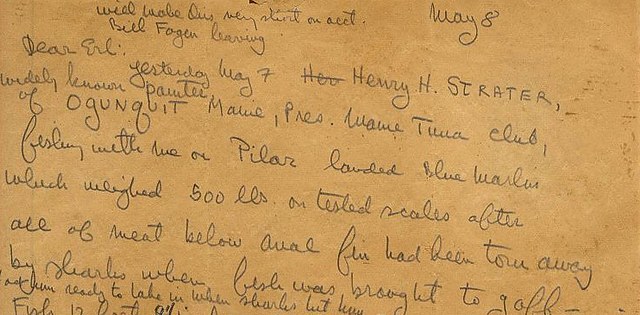 will make this very short on acct.
Bill Fagen leaving
May 8
Dear Erl:
yesterday May 7 Her Henry H. STRATER,
widely known painter
of OGUNQUIT Maine, Pres. Maine Tuna club,
fishing with me on Pilar landed Blue Marlin
which weighed 500 lbs. on tested scales after
all of meat below anal fin had been torn away
by sharks when fish was brought to gaff —
ready to take in when sharks hit him
Fish 12 feet